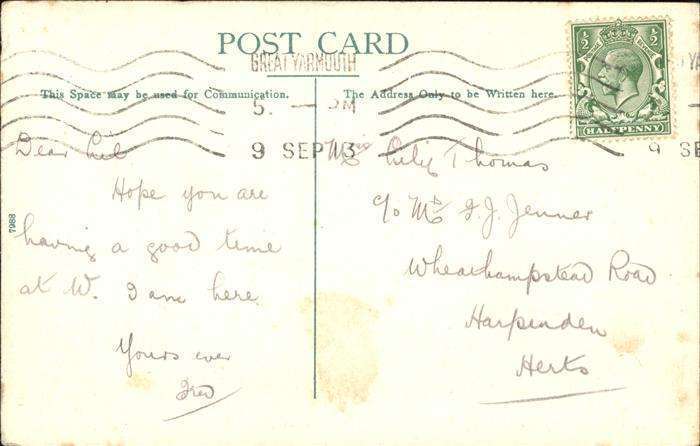 POST CARD
GREAT YARMOUTH
5. — PM
9 SEP 13
½ ½
HALFPENNY
This Space may be used for Communication.
The Address Only to be Written here.
Dear Lil
Hope you are
having a good time
at W. I am here
Yours ever
Fred
1988
Miss Thomas
c/o Mrs J. Jenner
Wheathampstead Road
Harpenden
Herts
9 SE